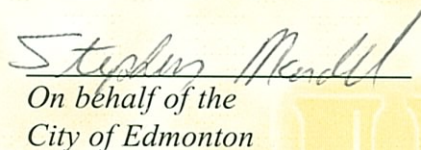 Stephen Mandel
On behalf of the
City of Edmonton